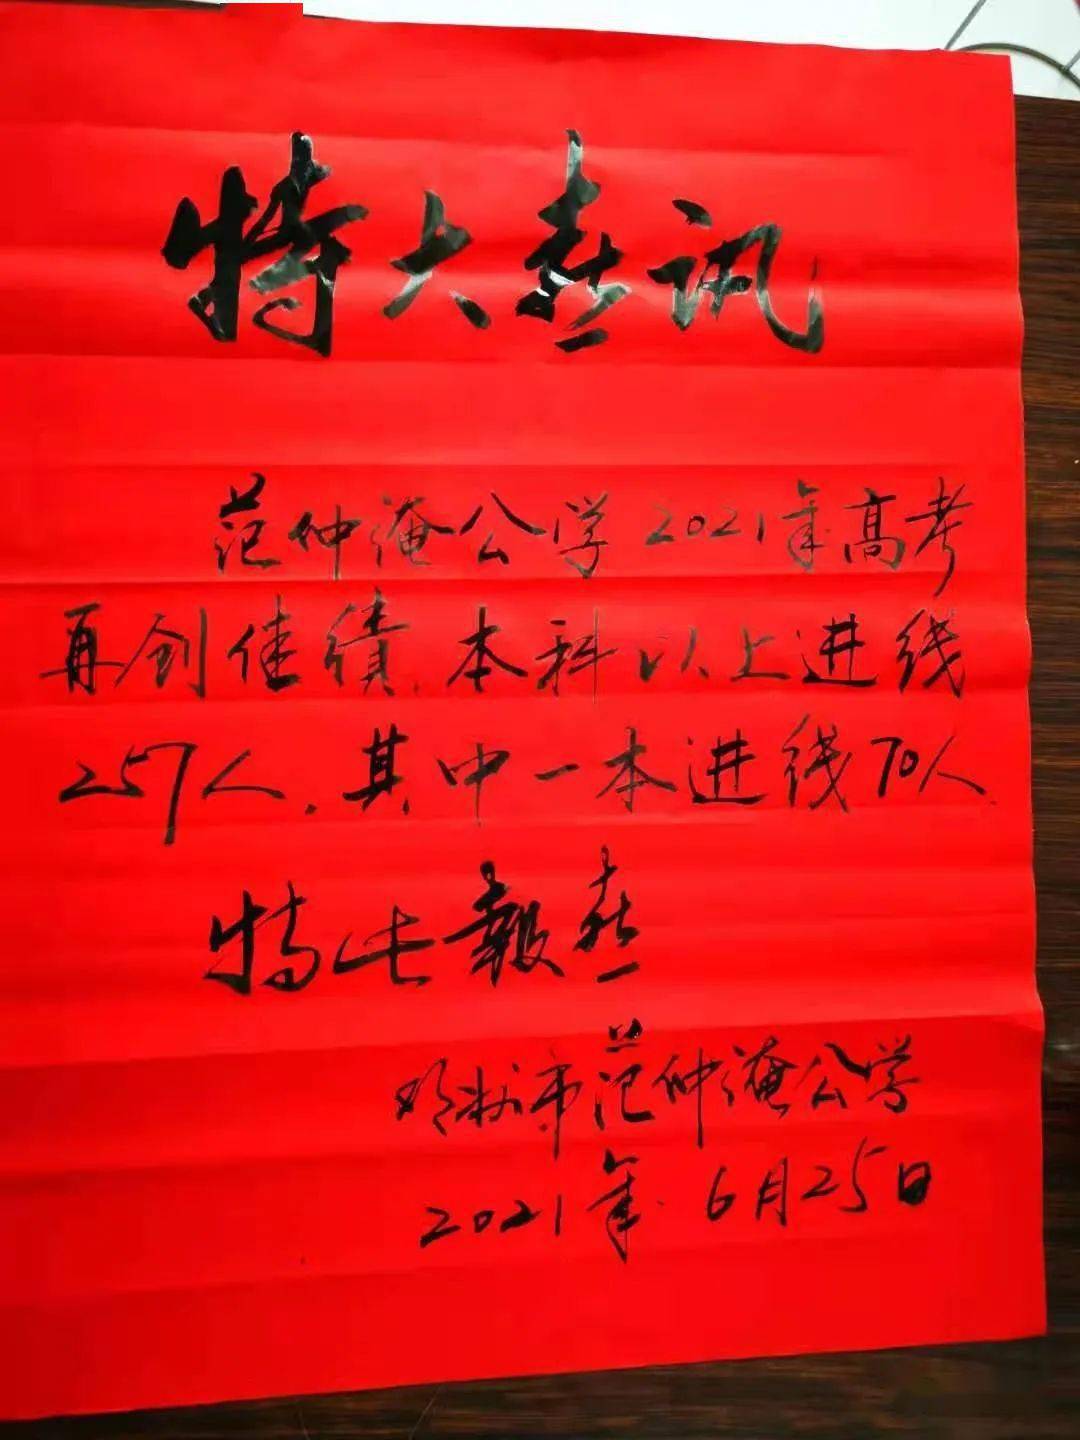 特大喜讯
范仲淹公学2021年高考
再创佳绩,本科以上进线
257人,其中一本进线70人.
特此報喜
邓州市范仲淹公学
2021年.6月25日